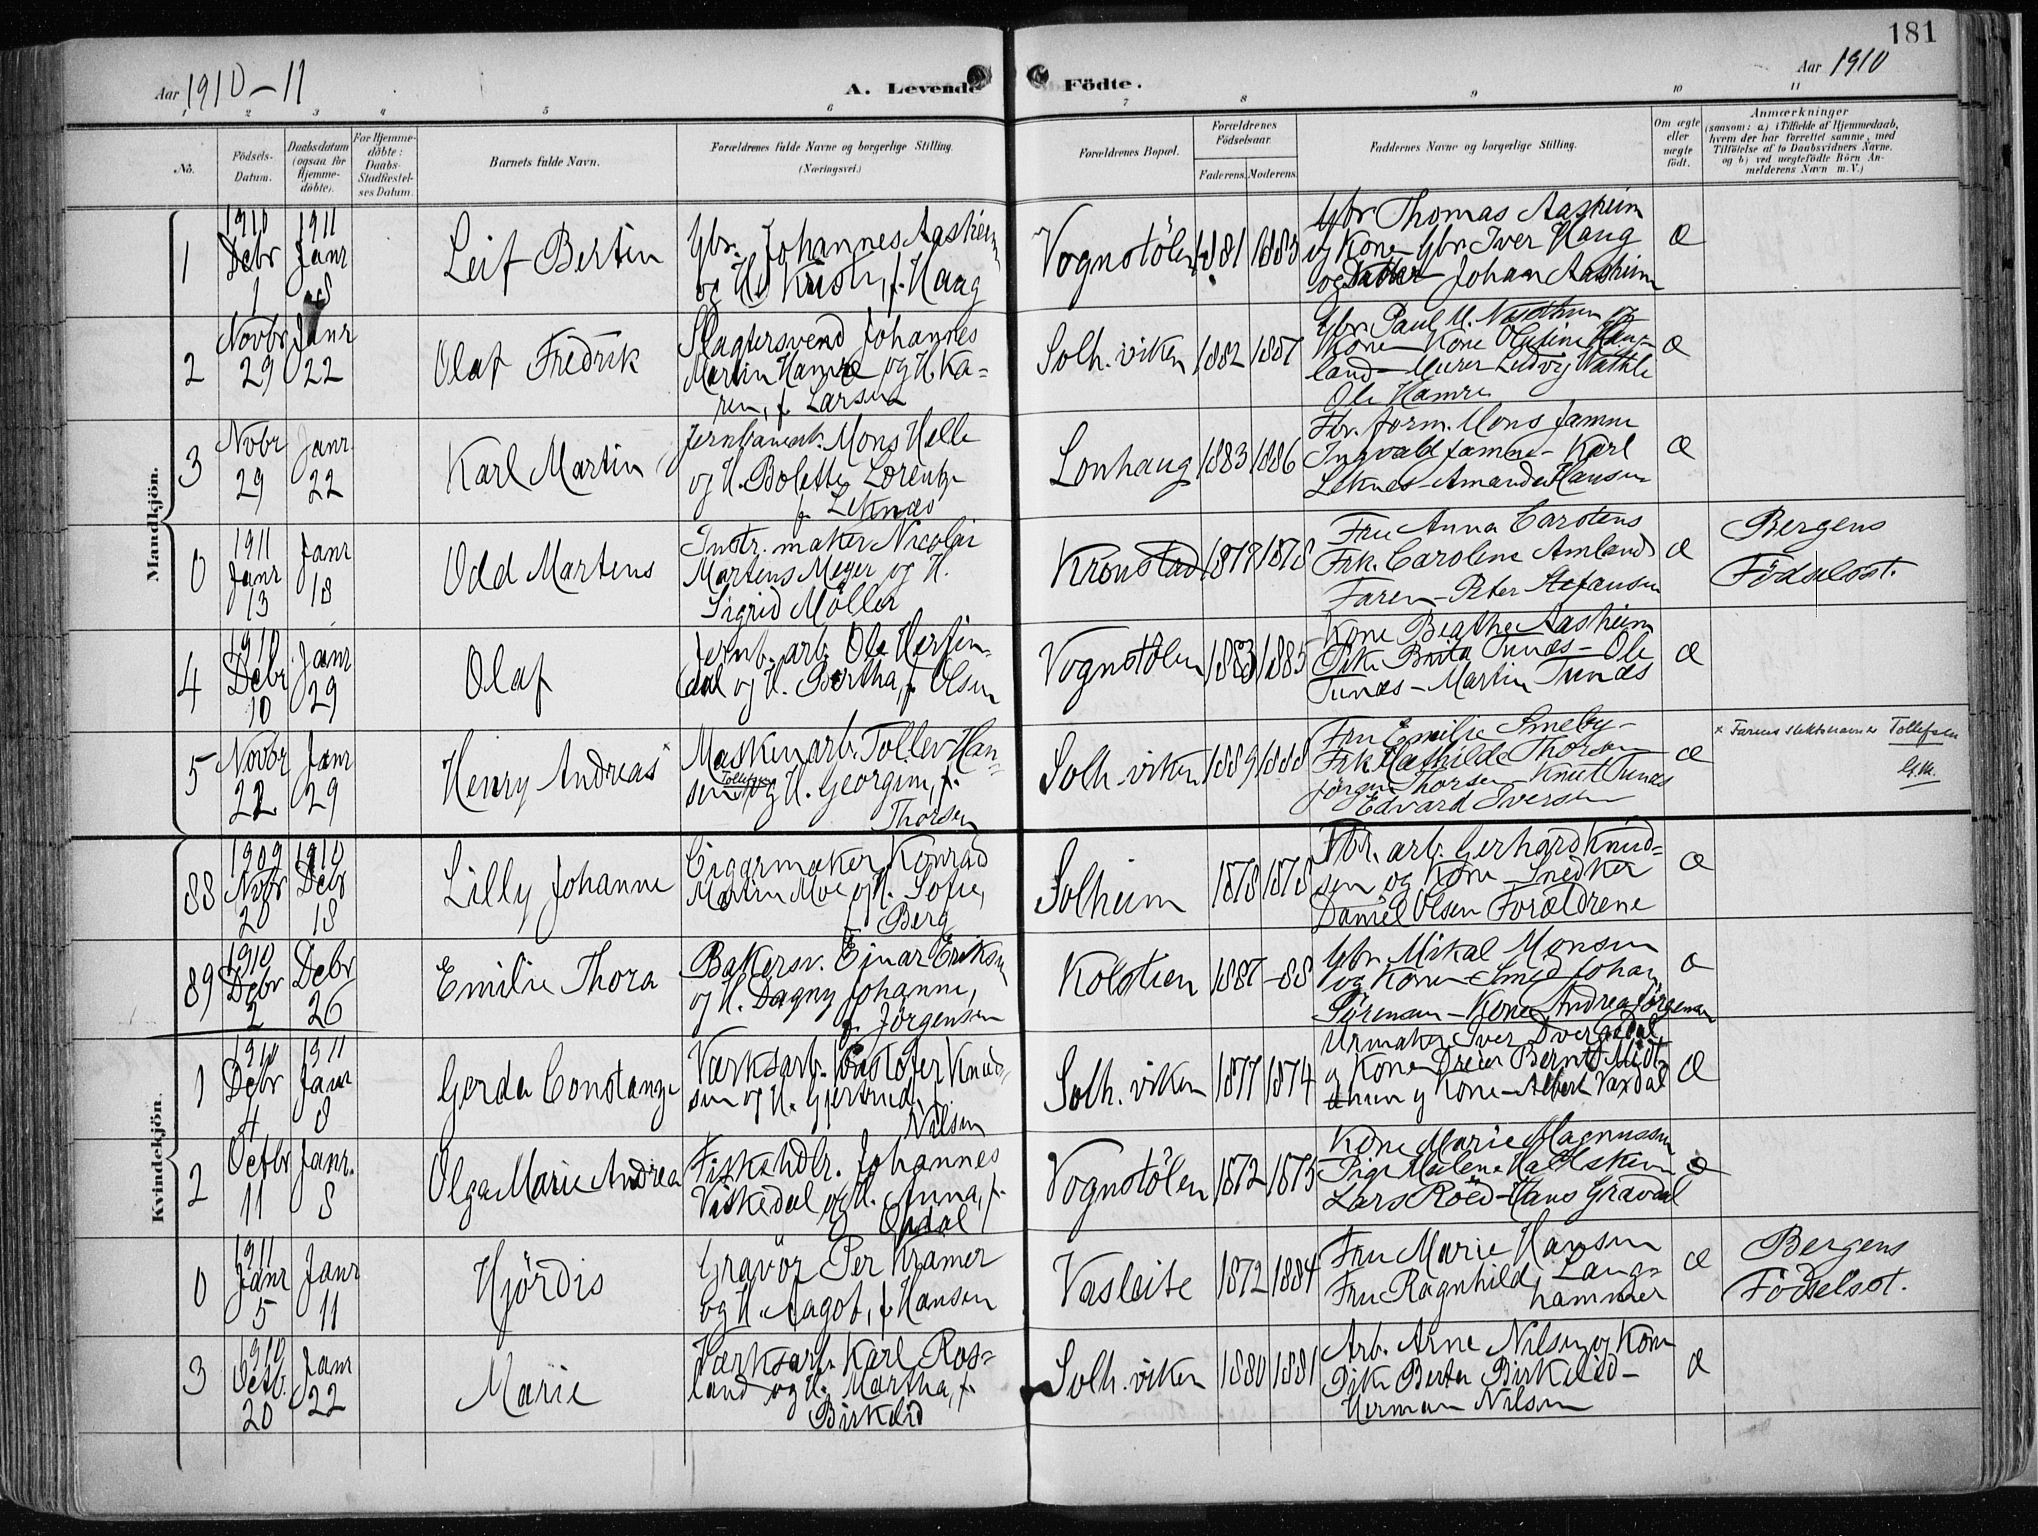 181
Aar 1910-11
A. Levende Födte.
Aar 1910
1 2 3 4 5 6 7 8 9 10 11
No.
Födsels-
Datum.
Daabsdatum
(ogsaa for
Hjemme-
döbte).
For Hjemme-
döbte:
Daabs-
Stadfæstel-
ses Datum.
Barnets fulde Navn.
Forældrenes fulde Navne og borgerlige Stilling.
(Næringsvei.)
Forældrenes Bopæl.
Forældrenes
Födselsaar.
Faderens. Moderens.
Faddernes Navne og borgerlige Stilling.
Om ægte
eller
uægte
födt.
Anmærkninger
(saasom: a) i Tilfælde af Hjemmedaab,
hvem der har forrettet samme, med
Tilföielse af to Daabsvidners Navne,
og b) ved uægtefödte Börn An-
melderens Navn m. V.)
Mandkjön.
1
1910
Debr
1
1911
Janr
8
Leif Bertin
Gbr. Johannes Aasheim
og H. f. Haug
Vognstölen
1881 1883
Gbr Thomas Aasheim
og Kone - Gbr. Iver Haug
og Johan Aasheim
Æ
2
Novbr
29
Janr
22
Olaf Fredrik
Slagtersvend Johannes
Martin Hamre og H. Ka-
ren, f. Larsen
Solh. viken
1882 1887
Gbr. Paul M.
Kone - Kone Olufine Hau-
land - Murer Ludvig
Ole Hamre
Æ
3
Novbr
29
Janr
22
Karl Martin
Mons Helle
og H. Bolette Lorentze
f. Leknes
Lonhaug
1883 1886
Fbr. form. Mons Jamne
Ingvald Jamne - Karl
Leknes - Amanda Hansen
Æ
0
1911
Janr
13
Janr
18
Odd Martens
Instr. maker Nicolai
Martens Meyer og H.
Sigrid Möller
Kronstad
1879 1878
Fru Anna Carstens
Frk. Caroline Amland
Faren - Peter Stefansen
Æ
Bergens
Födselsst.
4
1910
Debr
10
Janr
29
Olaf
Jernb. arb. Ole Herfin-
dal og H. Bertha, f. Olsen
Vognstölen
1883 1885
Kone Beathe Aasheim
Pike Brita Tunæs - Ole
Tunæs - Martin Tunæs
Æ
5
Novbr
22
Janr
29
Henry Andreas x
Maskinarb. Tollev Han-
sen Tollefsen og H. Georgine, f.
Thorsen
Solh. viken
1889 1888
Fru Emilie Smeby -
Frk Mathilde Thorsen
Jörgen Thorsen - Knut Tunæs
Edvard Iversen
Æ
x Farens slektsnavn er Tollefsen
G.M.
Kvindekjön.
88
1909
Novbr
20
1910
Debr
18
Lilly Johanne
Cigarmaker Konrad
Martin Moe og H. Sofie,
f. Berg
Solheim
1878 1878
Fbr. arb. Gerhard Knud-
sen og Kone - Snedker
Daniel Olsen Forældrene
Æ
89
1910
Debr
2
Debr
26
Emilie Thora
Bakersv. Einar Eriksen
og H. Dagny Johanne,
f. Jörgensen
Kolstien
1887 -88
Gbr. Mikal Monsen
og Kone - Smed Johan
Sörensen - Kone Andrea Jörgensen
Æ
1
1910
Debr
4
1911
Janr
8
Gerda Constanze
Værksarb. Kristofer Knud-
sen og H. Gjertrud, f.
Nilsen
Solh. viken
1877 1874
Urmaker Iver Dvergsdal
og Kone Dreier Bernt Midt-
thun og Kone - Albert Vaxdal
Æ
2
Octbr
11
Janr.
8
Olga Marie Andrea
Fiskehdlr. Johannes
Viskedal og H. Anna, f.
Opdal
Vognstölen
1872 1875
Kone Marie Magnussen
Pige Malene
Lars Röed - Hans Gravdal
Æ
0
1911
Janr
5
Janr
11
Hjördis
Gravör Per Kramer
og H. Aagot, f. Hansen
Vasleite
1872 1884
Fru Marie Hansen
Fru Ragnhild Lang-
hammer
Æ
Bergens
Födselsst.
3
1910
Octb.
20
Janr
22
Marie
Værksarb. Karl Ros-
land og H. Martha, f.
Birkelid
Solh. viken
1880 1881
Arb. Arne Nilsen og Kone
Pike Berta Birkelid -
Herman Nilsen
Æ